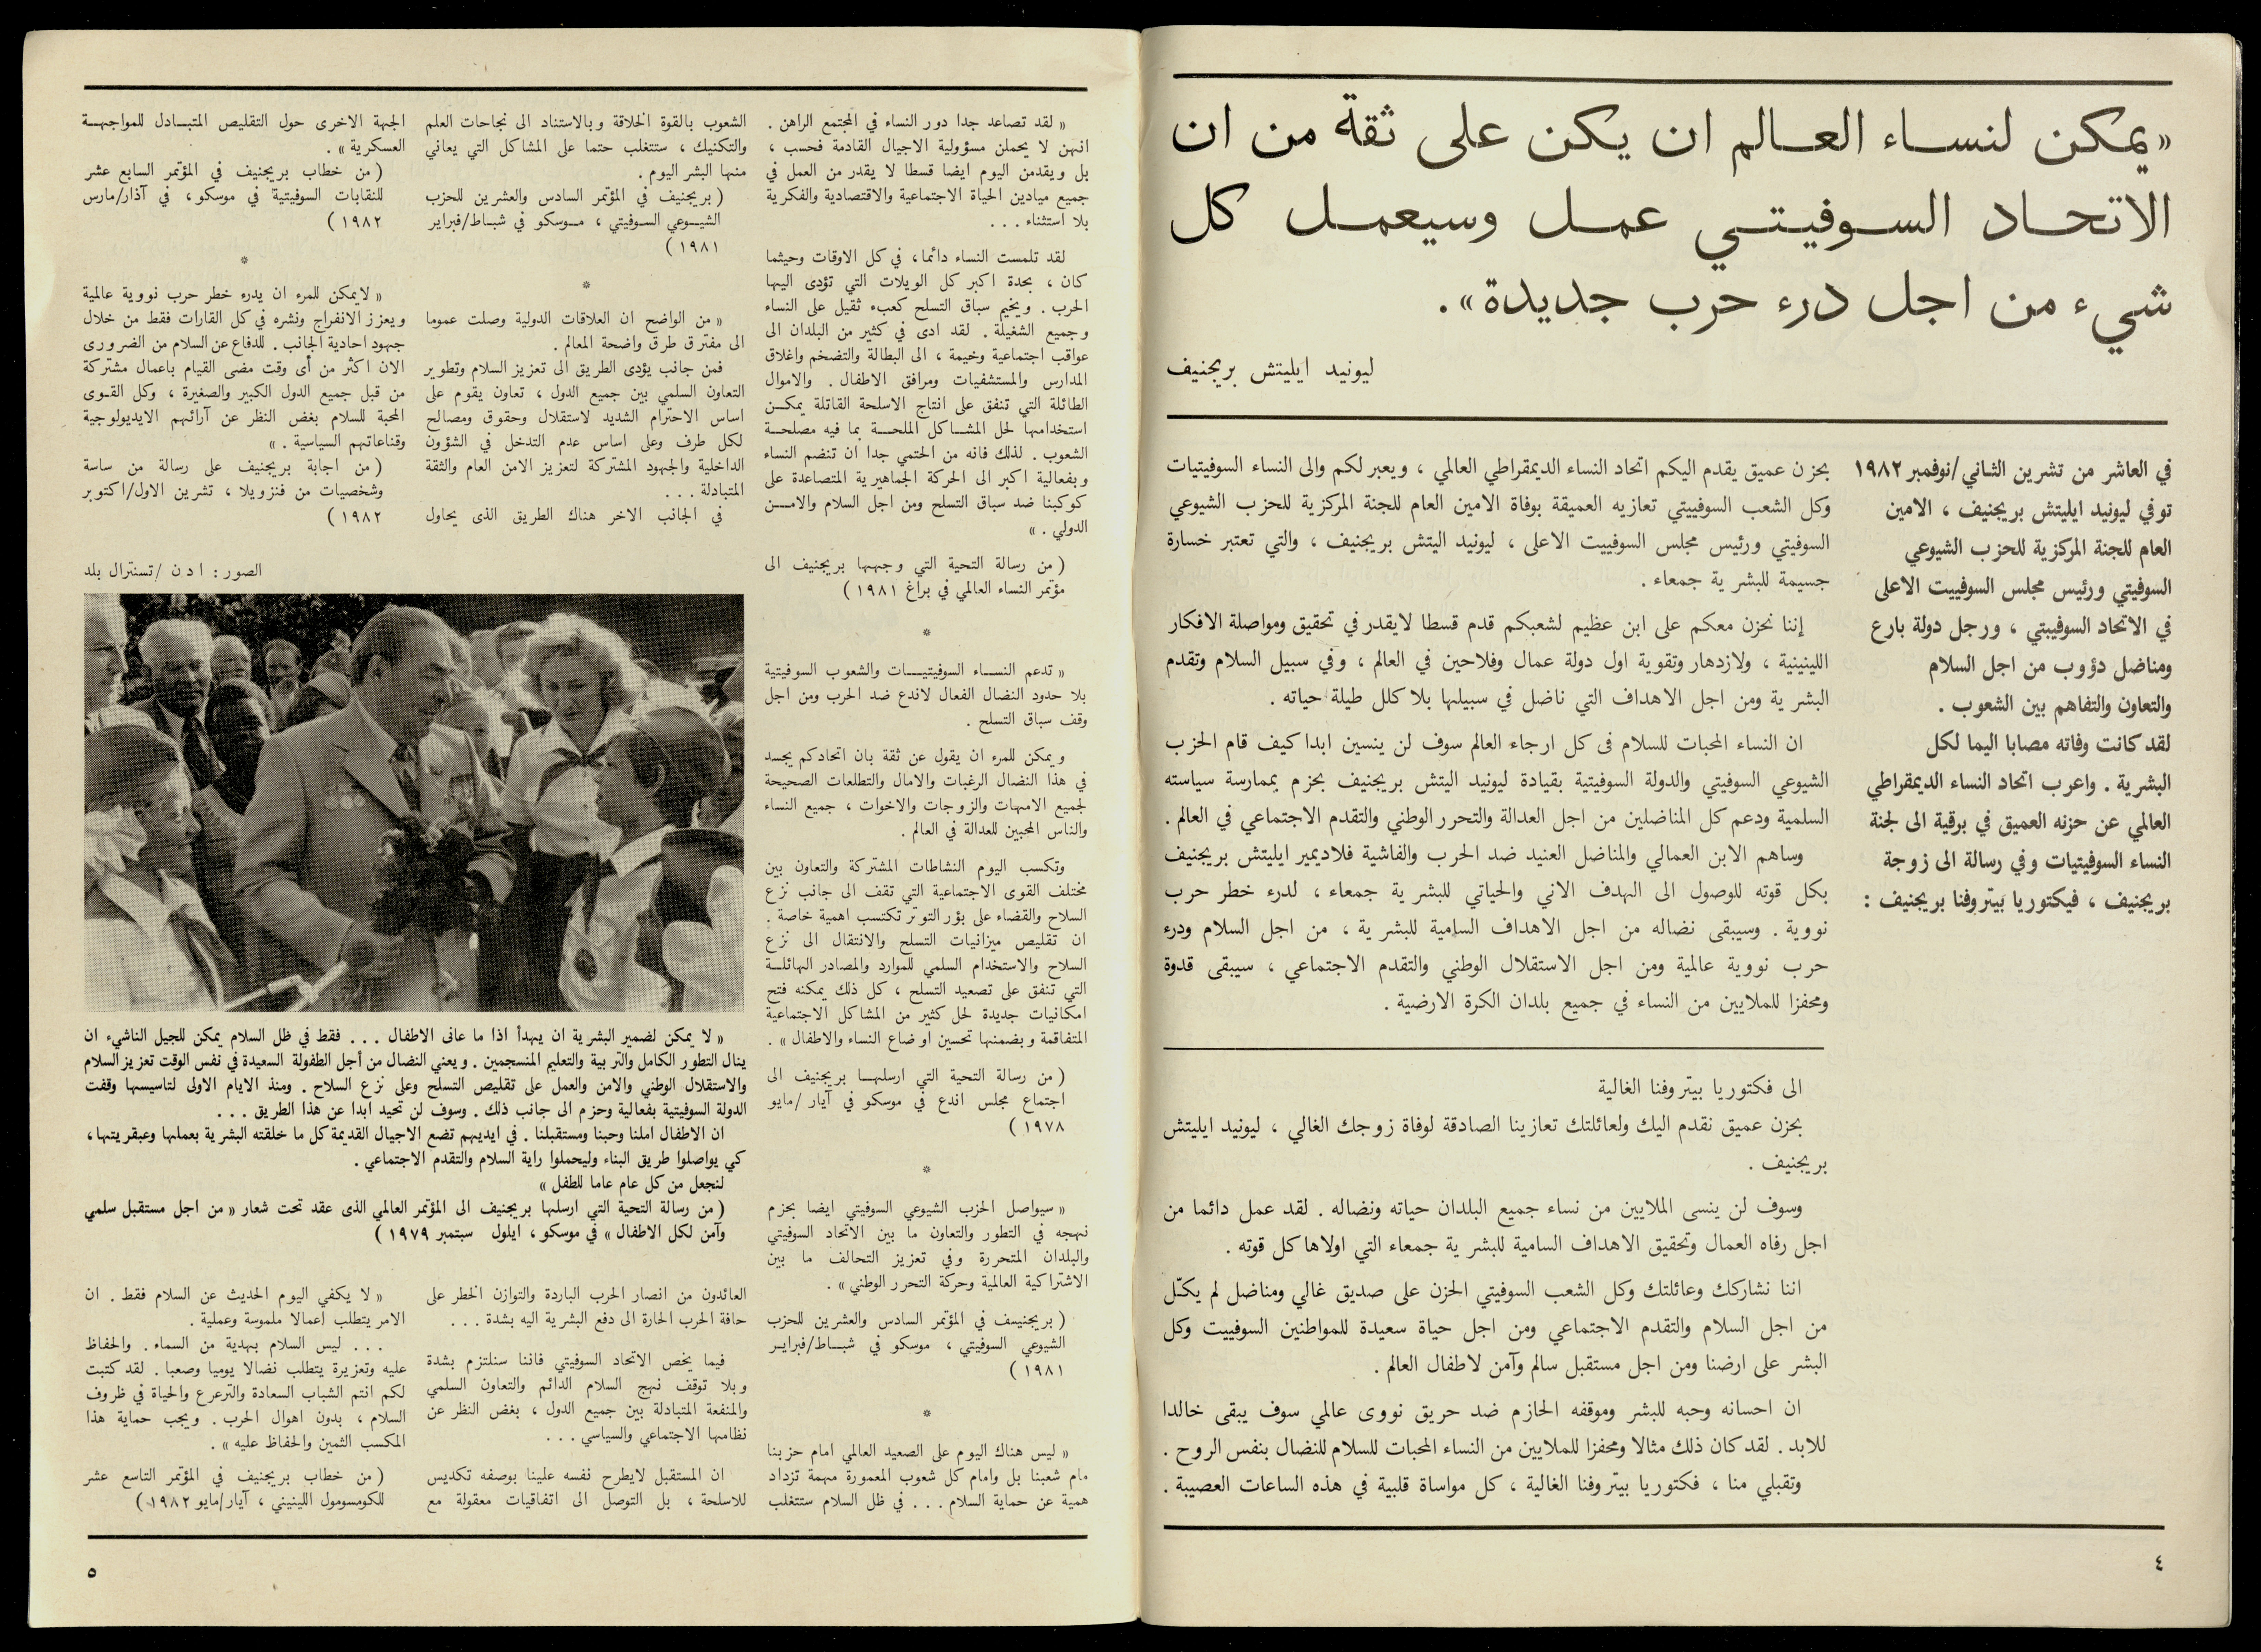 «يمكن لنساء العالم ان يكن على ثقة من ان
الاتحاد السوفيتي عمل وسيعمل كل
شيء من اجل درء حرب جديدة».
ليونيد ايليتش بريجنيف
في العاشر من تشرين الثاني/نوفمبر ١٩٨٢
توفي ليونيد ايليتش بريجنيف ، الامين
العام للجنة المركزية للحزب الشيوعي
السوفيتي ورئيس مجلس السوفييت الاعلى
في الاتحاد السوفييتي ، ورجل دولة بارع
ومناضل دؤوب من اجل السلام
والتعاون والتفاهم بين الشعوب .
لقد كانت وفاته مصابا اليما لكل
البشرية . واعرب اتحاد النساء الديمقراطي
العالمي عن حزنه العميق في برقية الى لجنة
النساء السوفيتيات وفي رسالة الى زوجة
بريجنيف ، فيكتوريا بيتروفنا بريجنيف :
بحزن عميق يقدم اليكم اتحاد النساء الديمقراطي العالمي ، ويعبر لكم والى النساء السوفيتيات
وكل الشعب السوفييتي تعازيه العميقة بوفاة الامين العام للجنة المركزية للحزب الشيوعي
السوفيتي ورئيس مجلس السوفييت الاعلى ، ليونيد اليتش بريجنيف ، والتي تعتبر خسارة
جسيمة للبشرية جمعاء .
إننا نحزن معكم على ابن عظيم لشعبكم قدم قسطا لايقدر في تحقيق ومواصلة الافكار
اللينينية ، ولازدهار وتقوية اول دولة عمال وفلاحين في العالم ، وفي سبيل السلام وتقدم
البشرية ومن اجل الاهداف التي ناضل في سبيلها بلا كلل طيلة حياته .
ان النساء المحبات للسلام فى كل ارجاء العالم سوف لن ينسين ابدا كيف قام الحزب
الشيوعي السوفيتي والدولة السوفيتية بقيادة ليونيد اليتش بريجنيف بحزم بممارسة سياسته
السلمية ودعم كل المناضلين من اجل العدالة والتحرر الوطني والتقدم الاجتماعي في العالم .
وساهم الابن العمالي والمناضل العنيد ضد الحرب والفاشية فلاديمير ايليتش بريجنيف
بكل قوته للوصول الى الهدف الاني والحياتي للبشرية جمعاء ، لدرء خطر حرب
نووية . وسيبقى نضاله من اجل الاهداف السامية للبشرية ، من اجل السلام ودرء
حرب نووية عالمية ومن اجل الاستقلال الوطني والتقدم الاجتماعي ، سيبقى قدوة
ومحفزا للملايين من النساء في جميع بلدان الكرة الارضية .
الى فكتوريا بيتروفنا الغالية
بحزن عميق نقدم اليك ولعائلتك تعازينا الصادقة لوفاة زوجك الغالي ، ليونيد ايليتش
بريجنيف .
وسوف لن ينسى الملايين من نساء جميع البلدان حياته ونضاله . لقد عمل دائما من
اجل رفاه العمال وتحقيق الاهداف السامية للبشرية جمعاء التي اولاها كل قوته .
اننا نشاركك وعائلتك وكل الشعب السوفيتي الحزن على صديق غالي ومناضل لم يكلّ
من اجل السلام والتقدم الاجتماعي ومن اجل حياة سعيدة للمواطنين السوفييت وكل
البشر على ارضنا ومن اجل مستقبل سالم وآمن لاطفال العالم .
ان احسانه وحبه للبشر وموقفه الحازم ضد حريق نووى عالمي سوف يبقى خالدا
للابد . لقد كان ذلك مثالا ومحفزا للملايين من النساء المحبات للسلام للنضال بنفس الروح .
وتقبلي منا ، فكتوريا بيتروفنا الغالية ، كل مواساة قلبية في هذه الساعات العصيبة .
٤
« لقد تصاعد جدا دور النساء في المجتمع الراهن .
انهن لا يحملن مسؤولية الاجيال القادمة فحسب ،
بل ويقدمن اليوم ايضا قسطا لا يقدر من العمل في
جميع ميادين الحياة الاجتماعية والاقتصادية والفكرية
بلا استثناء . . .
لقد تلمست النساء دائما ، في كل الاوقات وحيثما
كان ، بحدة اكبر كل الويلات التي تؤدى اليها
الحرب . ويخيم سباق التسلح كعبء ثقيل على النساء
وجميع الشغيلة . لقد ادى في كثير من البلدان الى
عواقب اجتماعية وخيمة ، الى البطالة والتضخم واغلاق
المدارس والمستشفيات ومرافق الاطفال . والاموال
الطائلة التي تنفق على انتاج الاسلحة القاتلة يمكن
استخدامها لحل المشاكل الملحة بما فيه مصلحة
الشعوب . لذلك فانه من الحتمي جدا ان تنضم النساء
وبفعالية اكبر الى الحركة الجماهيرية المتصاعدة على
كوكبنا ضد سباق التسلح ومن اجل السلام والامن
الدولي . »
( من رسالة التحية التي وجهها بريجنيف الى
مؤتمر النساء العالمي في براغ ١٩٨١ )
*
« تدعم النساء السوفيتيات والشعوب السوفيتية
بلا حدود النضال الفعال لاندع ضد الحرب ومن اجل
وقف سباق التسلح .
ويمكن للمرء ان يقول عن ثقة بان اتحادكم يجسد
في هذا النضال الرغبات والامال والتطلعات الصحيحة
لجميع الامهات والزوجات والاخوات ، جميع النساء
والناس المحبين للعدالة في العالم .
وتكسب اليوم النشاطات المشتركة والتعاون بين
مختلف القوى الاجتماعية التي تقف الى جانب نزع
السلاح والقضاء على بؤر التوتر تكتسب اهمية خاصة .
ان تقليص ميزانيات التسلح والانتقال الى نزع
السلاح والاستخدام السلمي للموارد والمصادر الهائلة
التي تنفق على تصعيد التسلح ، كل ذلك يمكنه فتح
امكانيات جديدة لحل كثير من المشاكل الاجتماعية
المتفاقمة وبضمنها تحسين اوضاع النساء والاطفال » .
( من رسالة التحية التي ارسلها بريجنيف الى
اجتماع مجلس اندع في موسكو في آيار /مايو
١٩٧٨ )
*
« سيواصل الحزب الشيوعي السوفيتي ايضا بحزم
نهجه في التطور والتعاون ما بين الاتحاد السوفيتي
والبلدان المتحررة وفي تعزيز التحالف ما بين
الاشتراكية العالمية وحركة التحرر الوطني » .
( بريجنيسف في المؤتمر السادس والعشرين للحزب
الشيوعي السوفيتي ، موسكو في شباط/فبراير
١٩٨١ )
*
« ليس هناك اليوم على الصعيد العالمي امام حزبنا
مام شعبنا بل وامام كل شعوب المعمورة مهمة تزداد
همية عن حماية السلام . . . في ظل السلام ستتغلب
الشعوب بالقوة الخلاقة وبالاستناد الى نجاحات العلم
والتكنيك ، ستتغلب حتما على المشاكل التي يعاني
منها البشر اليوم .
( بريجنيف في المؤتمر السادس والعشرين للحزب
الشيوعي السوفيتي ، موسكو في شباط/فبراير
١٩٨١ )
*
« من الواضح ان العلاقات الدولية وصلت عموما
الى مفترق طرق واضحة المعالم .
فمن جانب يؤدى الطريق الى تعزيز السلام وتطوير
التعاون السلمي بين جميع الدول ، تعاون يقوم على
اساس الاحترام الشديد لاستقلال وحقوق ومصالح
لكل طرف وعلى اساس عدم التدخل في الشؤون
الداخلية والجهود المشتركة لتعزيز الامن العام والثقة
المتبادلة . . .
في الجانب الاخر هناك الطريق الذى يحاول
العائدون من انصار الحرب الباردة والتوازن الخطر على
حافة الحرب الحارة الى دفع البشرية اليه بشدة . . .
فيما يخص الاتحاد السوفيتي فاننا سنلتزم بشدة
وبلا توقف نهج السلام الدائم والتعاون السلمي
والمنفعة المتبادلة بين جميع الدول ، بغض النظر عن
نظامها الاجتماعي والسياسي . . .
ان المستقبل لايطرح نفسه علينا بوصفه تكديس
للاسلحة ، بل التوصل الى اتفاقيات معقولة مع
الجهة الاخرى حول التقليص المتبادل للمواجهة
العسكرية » .
( من خطاب بريجنيف في المؤتمر السابع عشر
للنقابات السوفيتية في موسكو ، في آذار/مارس
١٩٨٢ )
*
« لايمكن للمرء ان يدرء خطر حرب نووية عالمية
ويعزز الانفراج ونشره في كل القارات فقط من خلال
جهود احادية الجانب . للدفاع عن السلام من الضرورى
الان اكثر من أى وقت مضى القيام باعمال مشتركة
من قبل جميع الدول الكبير والصغيرة ، وكل القوى
المحبة للسلام بغض النظر عن آرائهم الايديولوجية
وقناعاتهم السياسية . »
( من اجابة بريجنيف على رسالة من ساسة
وشخصيات من فنزويلا ، تشرين الاول/اكتوبر
١٩٨٢ )
الصور : ا د ن /تسنترال بلد
« لا يمكن لضمير البشرية ان يهدأ اذا ما عانى الاطفال . . . فقط في ظل السلام يمكن للجيل الناشيء ان
ينال التطور الكامل والتربية والتعليم المنسجمين . ويعني النضال من أجل الطفولة السعيدة في نفس الوقت تعزيز السلام
والاستقلال الوطني والامن والعمل على تقليص التسلح وعلى نزع السلاح . ومنذ الايام الاولى لتاسيسها وقفت
الدولة السوفيتية بفعالية وحزم الى جانب ذلك . وسوف لن تحيد ابدا عن هذا الطريق . . .
ان الاطفال املنا وحبنا ومستقبلنا . في ايديهم تضع الاجيال القديمة كل ما خلقته البشرية بعملها وعبقريتها ،
كي يواصلوا طريق البناء وليحملوا راية السلام والتقدم الاجتماعي .
لنجعل من كل عام عاما للطفل »
( من رسالة التحية التي ارسلها بريجنيف الى المؤتمر العالمي الذى عقد تحت شعار « من اجل مستقبل سلمي
وآمن لكل الاطفال » في موسكو ، ايلول سبتمبر ١٩٧٩ )
« لا يكفي اليوم الحديث عن السلام فقط . ان
الامر يتطلب اعمالا ملموسة وعملية .
. . . ليس السلام بهدية من السماء . والحفاظ
عليه وتعزيزة يتطلب نضالا يوميا وصعبا . لقد كتبت
لكم انتم الشباب السعادة والترعرع والحياة في ظروف
السلام ، بدون اهوال الحرب . ويجب حماية هذا
المكسب الثمين والحفاظ عليه » .
( من خطاب بريجنيف في المؤتمر التاسع عشر
للكومسومول اللينيني ، آيار/مايو ١٩٨٢ )
٥